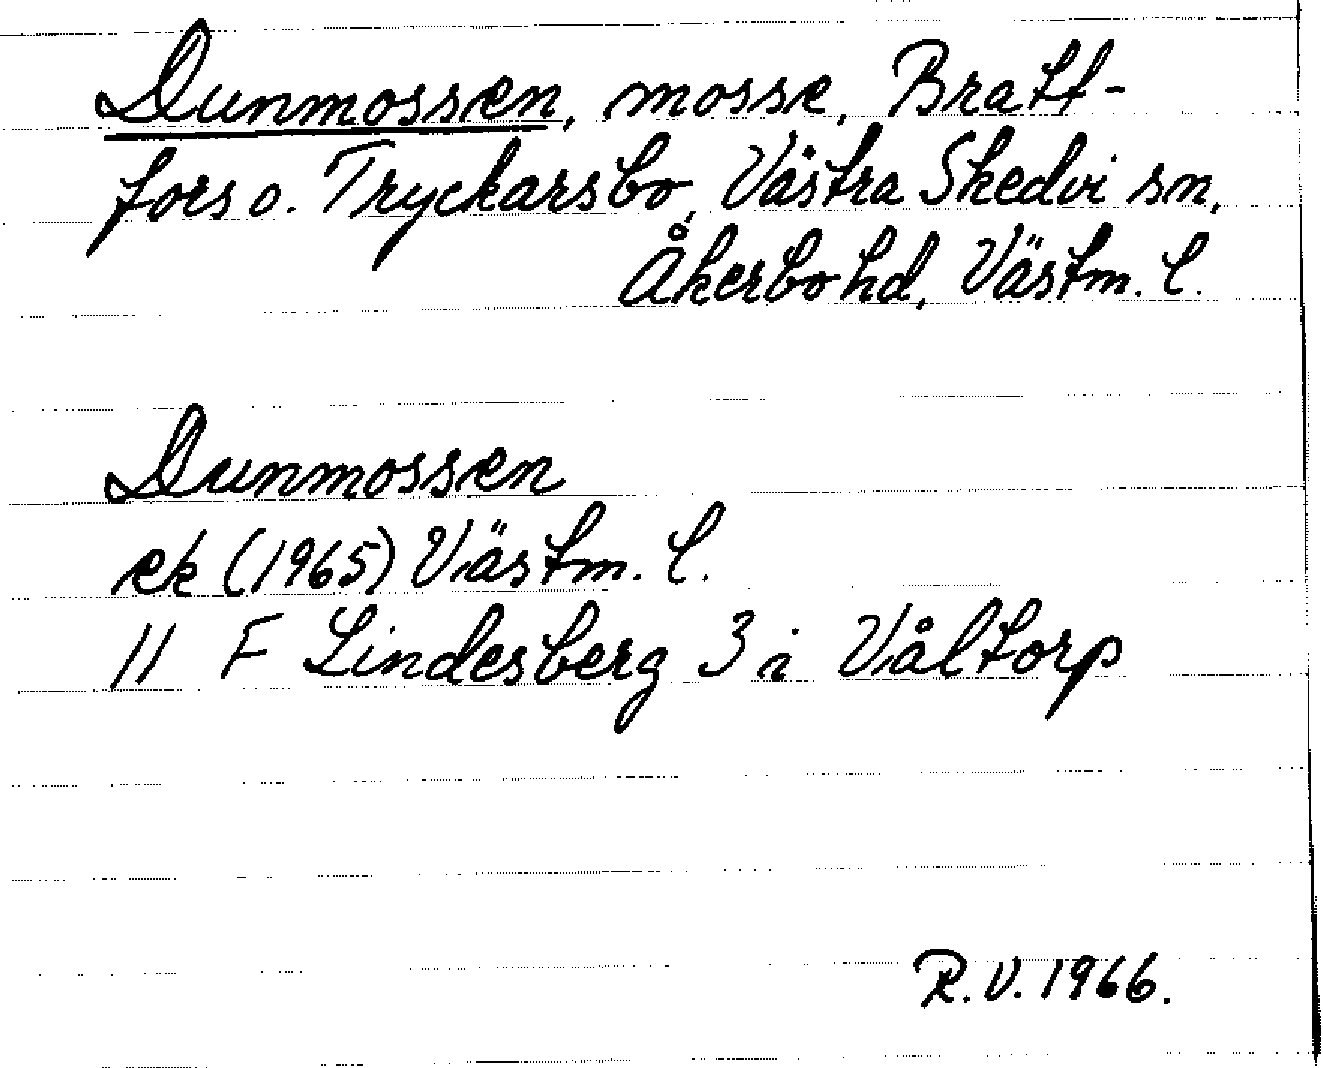 Dunmossen, mosse, Bratt-
fors o. Tryckarsbo, Västra Skedvi sn,
Åkerbo hd, Västm. l.
Dunmossen
ek (1965) Västm. l.
11 F Lindesberg 3 i Våltorp
R.V. 1966.